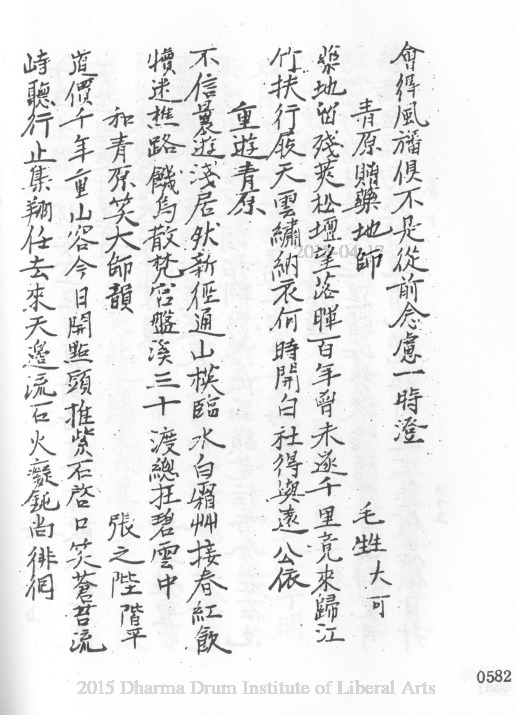 會得風旛俱不是從前念慮一時澄
青原贈藥地師
毛甡大可
藥地留殘莢松壇望落暉百年曾未遂千里竟來歸江
竹扶行屐天雲繡衲衣何時開白社得與遠公依
重遊青原
不信曩遊淺居然新徑通山樓臨水白霜艸接春紅飲
犢迷樵路饑烏散梵宮盤溪三十渡總在碧雲中
和青原笑大師韻
張之陛階平
道價千年重山容今日開點頭推紫石啓口笑蒼苔流
峙聽行止集翔任去來天邊流石火癡鈍尚徘徊
2015-04-17
0582
2015 Dharma Drum Institute of Liberal Arts